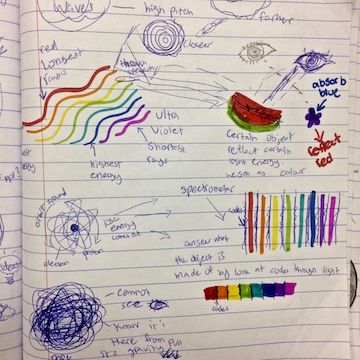 Waves
high pitch
farther
closer
red
longest
rays
through
absorb
blue
reflect
red
Ultra
Violet
Shortest
rays
highest
energy
Certain object
reflect certain
light energy.
we see as colour
spectrometer
codes
lose
energy
proton
electron
answer what
the object is
made of by look at codes through light
codes
Cannot
see
Know it's
there from pull
it's gravity